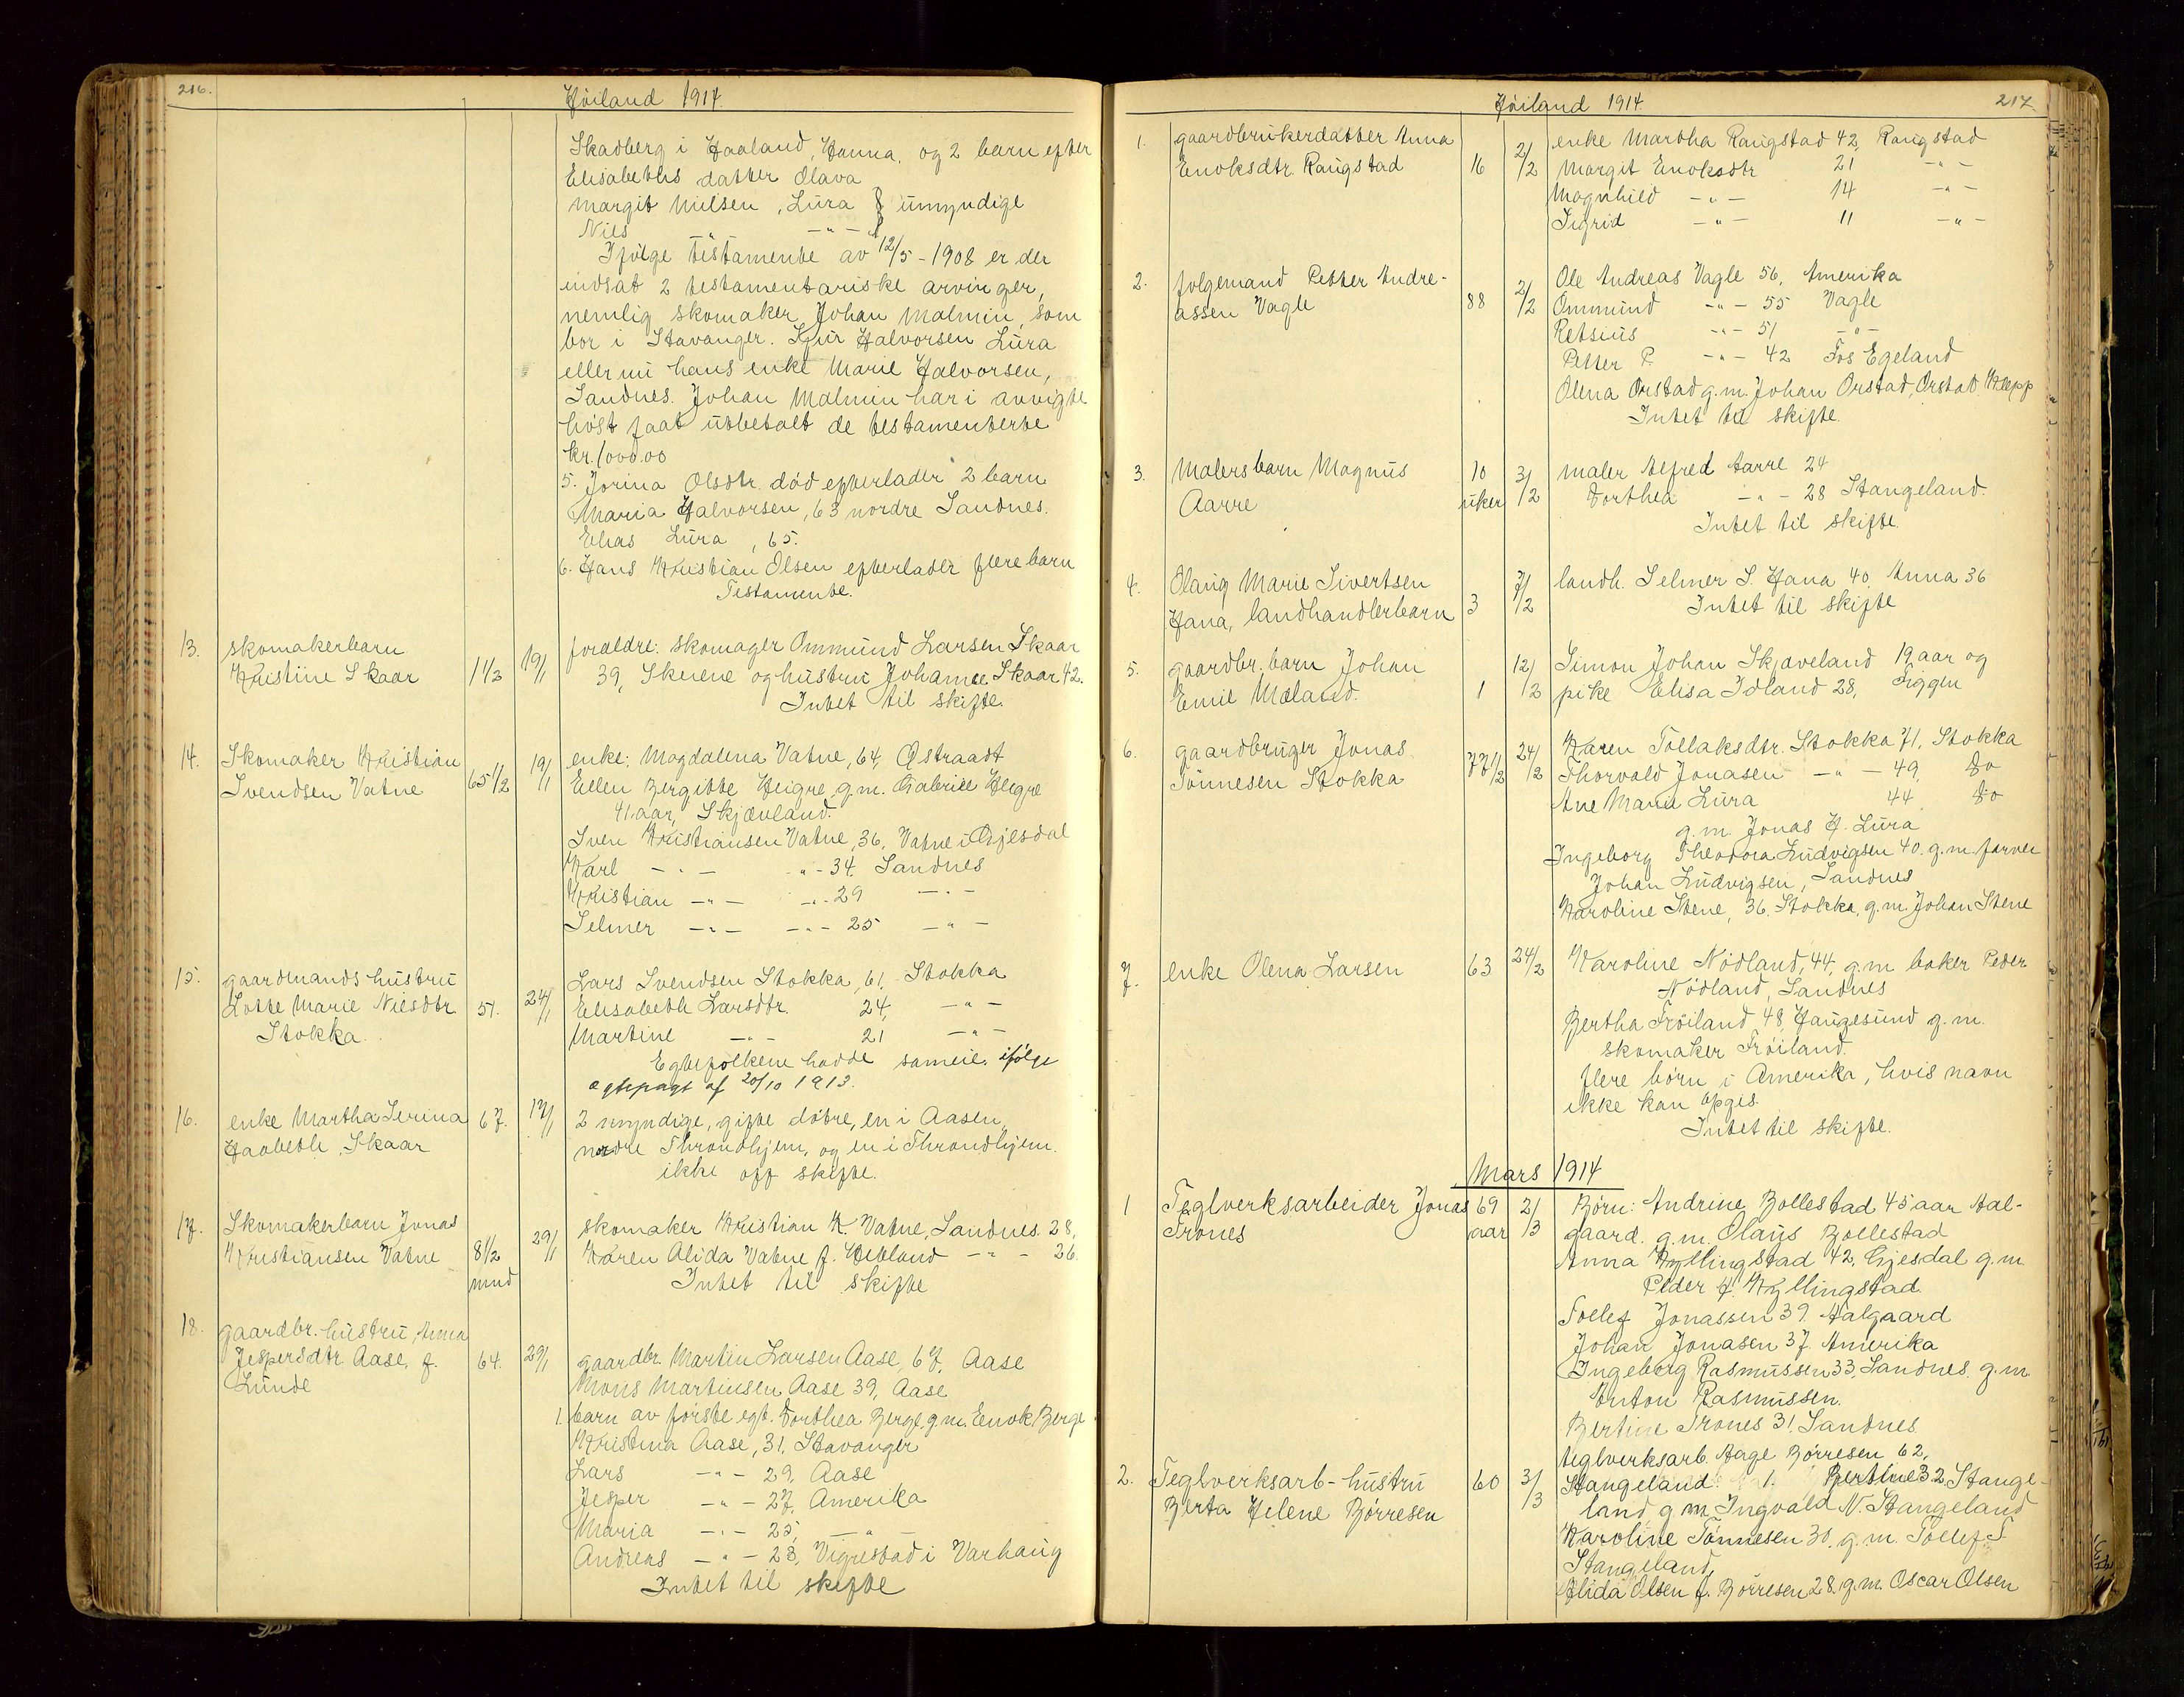 216.
Høiland 1914.
Skadberg i Haaland, Hanna, og 2 barn efter
Elisabeths datter Olava
Margit Nielsen, Lura } umyndige
Nils -"-
Ifølge testamente av 12/5-1908 er der
indsat 2 testamentariske arvinger,
nemlig skomaker Johan Malmin, som
bor i Stavanger. Halvorsen Lura
eller nu hans enke Marie Halvorsen,
Sandnes. Johan Malmin har i avvigte
høst faat utbetalt de testamenterte
kr. 1000.00
5. Jorina Olsdtr. død efterlader 2 barn
Maria Halvorsen, 63 nordre Sandnes.
Elias Lura, 65.
6. Hans Kristian Olsen efterlader flere barn
Testamente.
13. skomakerbarn
Kristine Skaar 1 1/2 19/1
forældre: skomager Ommund Larsen Skaar
39, Skeiene og hustru Johanne Skaar 42.
Intet til skifte.
14. Skomaker Kristian
Svendsen Vatne 65 1/2 19/1
enke: Magdalena Vatne, 64, Østraadt
Ellen Bergitte Heigre, g.m. Gabriel Heigre
41 aar, Skjævland.
Sven Kristiansen Vatne, 36, Vatne i Gjesdal
Karl -"- -"- 34 Sandnes
Kristian -"- -"- 29 -"-
Selmer -"- -"- 25 -"-
15. gaardmands hustru
Lotte Marie Nilsdtr. 51. 24/1
Stokka.
Lars Svendsen Stokka, 61, Stokka
Elisabeth Larsdtr. 24, -"-
Martine -"- 21 -"-
Egtefolkene hadde sameie ifølge
egtepagt af 20/10 1913.
16. enke Martha Serina 67. 17/1
Haabeth, Skaar
2 myndige, gifte døtre, en i Aasen,
nordre Throndhjem, og en i Throndhjem.
ikke off skifte.
17. Skomakerbarn Jonas
Kristiansen Vatne 8 1/2 mnd 29/1
skomaker Kristian K. Vatne, Sandnes. 28,
Karen Alida Vatne f. Hetland -"- 26.
Intet til skifte
18. gaardbr. hustru, Anna
Jespersdtr. Aase, f. 64. 29/1
Lunde
gaardbr. Martin Larsen Aase, 67, Aase
Mons Martinsen Aase 39, Aase
1. barn av første egt. Dorthea Berge, g.m. Enok Berge
Kristina Aase, 31, Stavanger
Lars -"- 29, Aase
Jesper -"- 27, Amerika
Maria -"- 25, -"-
Andreas -"- 23, Vigrestad i Varhaug
Intet til skifte
Høiland 1914.
217.
1. gaardbrukerdatter Anna
Enoksdtr. Raugstad 16 2/2
enke Martha Raugstad 42, Raugstad
Margit Enoksdtr 21 -"-
Magnhild -"- 14 -"-
Sigrid -"- 11 -"-
2. følgemand Petter Andre-
assen Vagle 88 2/2
Ole Andreas Vagle 56, Amerika
Ommund -"- 55 Vagle
Retsius -"- 51 -"-
Petter P. -"- 42 Fos Egeland
Olena Orstad g.m. Johan Orstad, Orstad Klepp
Intet til skifte.
3. Malersbarn Magnus 10 3/2
Aarre uker
maler Alfred Aarre 24
Dorthea -"- 28 Stangeland.
Intet til skifte.
4. Olaug Marie Sivertsen 7/2
Hana, landhandlerbarn 3
landh. Selmer S. Hana 40, Anna 36
Intet til skifte
5. gaardbr. barn Johan 12/2
Emil Mæland. 1
Simon Johan Skjæveland 19 aar og
pike Elisa Idland 28, Figgen
6. gaardbruger Jonas
Tønnesen Stokka 77 1/2 24/2
Karen Tollaksdtr. Stokka 71, Stokka
Thorvald Jonasen -"- 49, do
Ane Maria Lura 44 do
g.m. Jonas H. Lura
Ingeborg Theodora Ludvigsen 40. g.m. farver
Johan Ludvigsen, Sandnes
Karoline Stene, 36. Stokka, g.m. Johan Stene
7. enke Olena Larsen 63 24/2
Karoline Nødland, 44, g.m. baker Peder
Nødland, Sandnes
Bertha Frøiland 48, Haugesund g.m.
skomaker Frøiland.
flere børn i Amerika, hvis navn
ikke kan opgis.
Intet til skifte.
Mars 1914
1 Teglverksarbeider Jonas 69 2/3
Trones aar
Børn: Andrine Bollestad 45 aar Aal-
gaard. g.m. Olaus Bollestad
Anna Kyllingstad 42, Gjesdal g.m.
Peder J. Kyllingstad.
Tollef Jonassen 39. Aalgaard
Johan Jonasen 37. Amerika
Ingeborg Rasmussen 33, Sandnes. g.m.
Anton Rasmussen.
Bertine Trones 31, Sandnes.
2. Teglverksarb-hustru 60 3/3
Berta Helene Børresen
teglverksarb. Aage Børresen 62,
Stangeland. 1. Bertine 32 Stange-
land g.m. Ingvald N. Stangeland
Karoline Tønnesen 30, g.m. Tollef T.
Stangeland,
Alida Olsen f. Børresen 28. g.m. Oscar Olsen